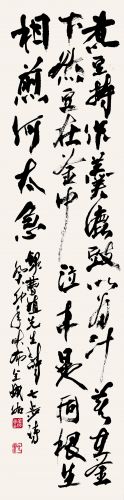 煮豆持作羹漉豉以為汁萁在釜
下然豆在釜中泣本是同根生
相煎何太急
錄曹植先生詩七步詩